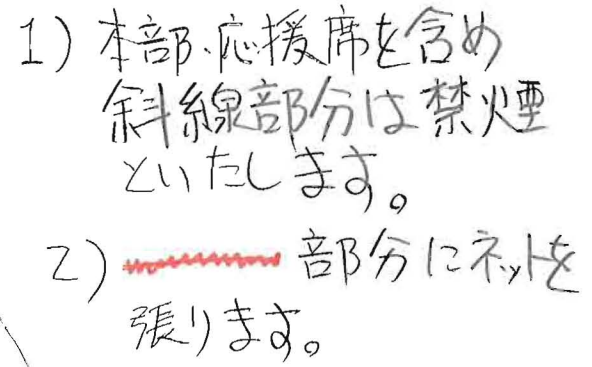 1) 本部、応援席を含め
斜線部分は禁煙
といたします。
2) 部分にネットを
張ります。